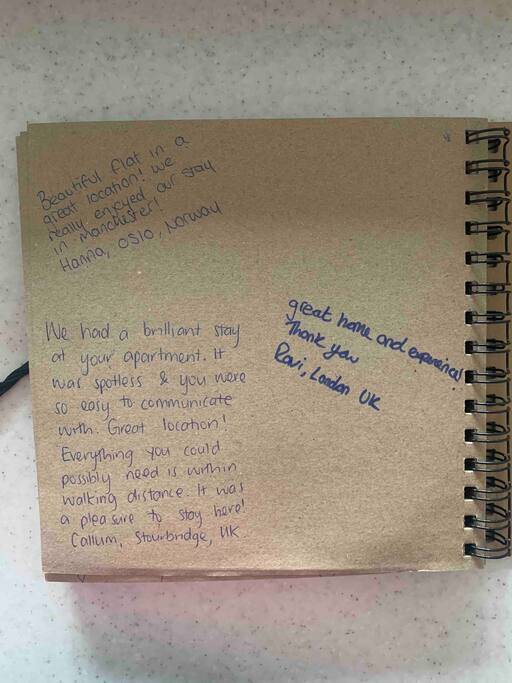 Beautiful flat in a
great location! we
really enjoyed our stay
in manchester!
Hanna, Oslo, Norway
We had a brilliant stay
at your apartment. It
was spotless & you were
so easy to communicate
with. Great location!
Everything you could
possibly need is within
walking distance. It was
a pleasure to stay here!
Callum, Stourbridge, UK
great home and experience!
Thank you
Ravi, London UK